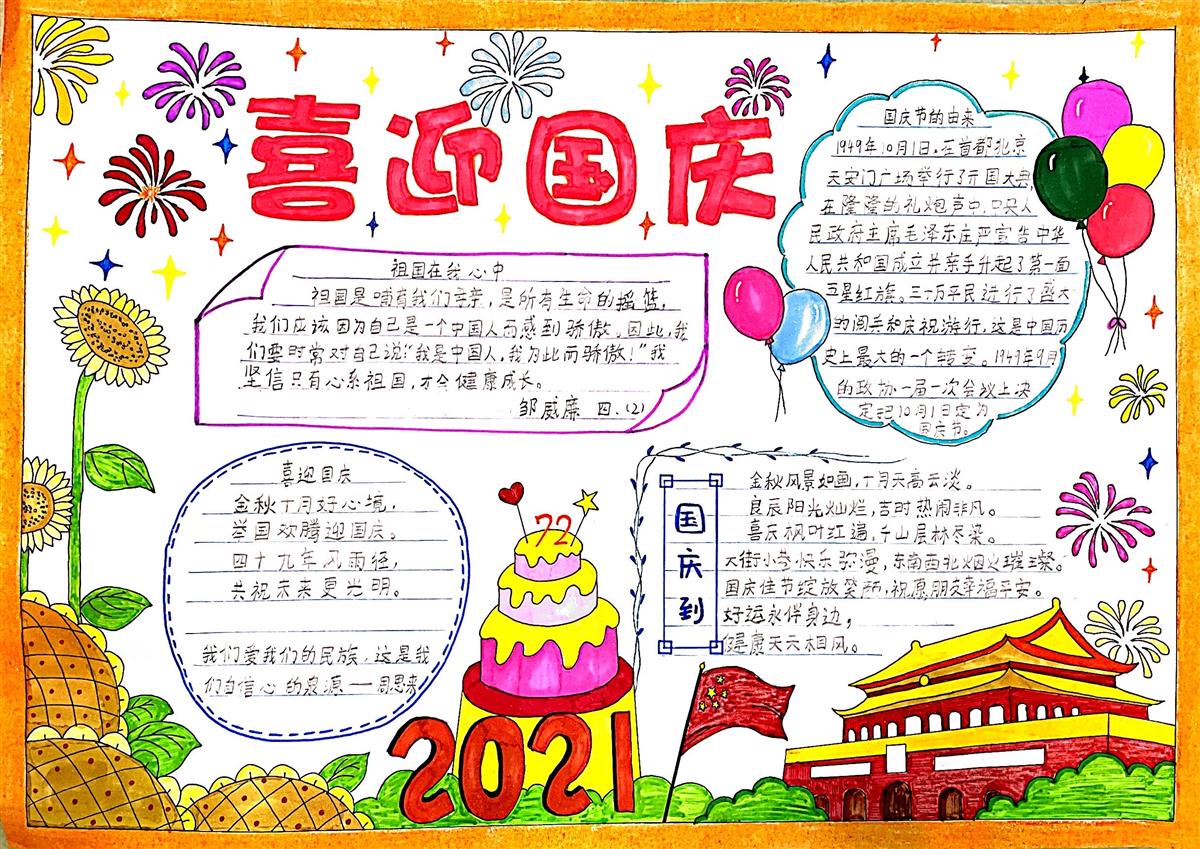 喜迎国庆
祖国在我心中
祖国是哺育我们母亲，是所有生命的摇篮，
我们应该因为自己是一个中国人而感到骄傲。因此，我
们要时常对自己说“我是中国人，我为此而骄傲！”我
坚信只有心系祖国，才会健康成长。
邹威廉 四、(2)
国庆节的由来
1949年10月1日，在首都北京
天安门广场举行了开国大典，
在隆隆的礼炮声中，中央人
民政府主席毛泽东庄严宣告中华
人民共和国成立并亲手升起了第一面
五星红旗。三十万平民进行了盛大
的阅兵和庆祝游行，这是中国历
史上最大的一个转变。1949年9月
的政协一届一次会议上决
定把10月1日定为
国庆节。
喜迎国庆
金秋十月好心境，
举国欢腾迎国庆。
四十九年风雨径，
共祝未来更光明。
我们爱我们的民族，这是我
们自信心的泉源——周恩来
72
2021
国庆到
金秋风景如画，十月天高云淡。
良辰阳光灿烂，吉时热闹非凡。
喜庆枫叶红遍，千山层林尽染。
大街小巷快乐弥漫，东南西北烟火璀璨。
国庆佳节绽放笑颜，祝愿朋友幸福平安。
好运永伴身边，
健康天天相风。